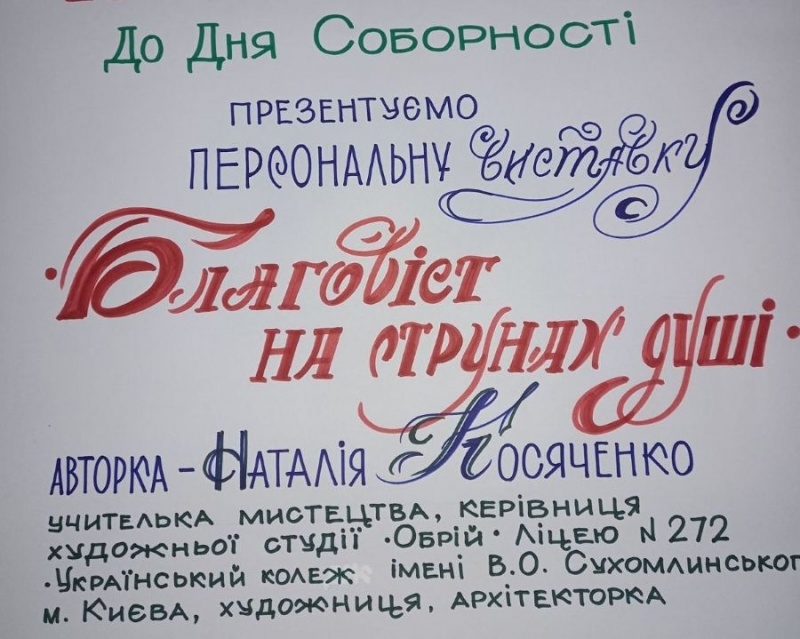 До Дня Соборності
ПРЕЗЕНТУЄМО
ПЕРСОНАЛЬНУ виставку
·Благовіст
на струнах душі·
АВТОРКА – Наталія Косяченко
учителька мистецтва, керівниця
художньої студії ·Обрій· Ліцею N 272
·Український колеж імені В.О. Сухомлинського
м. Києва, художниця, архітекторка